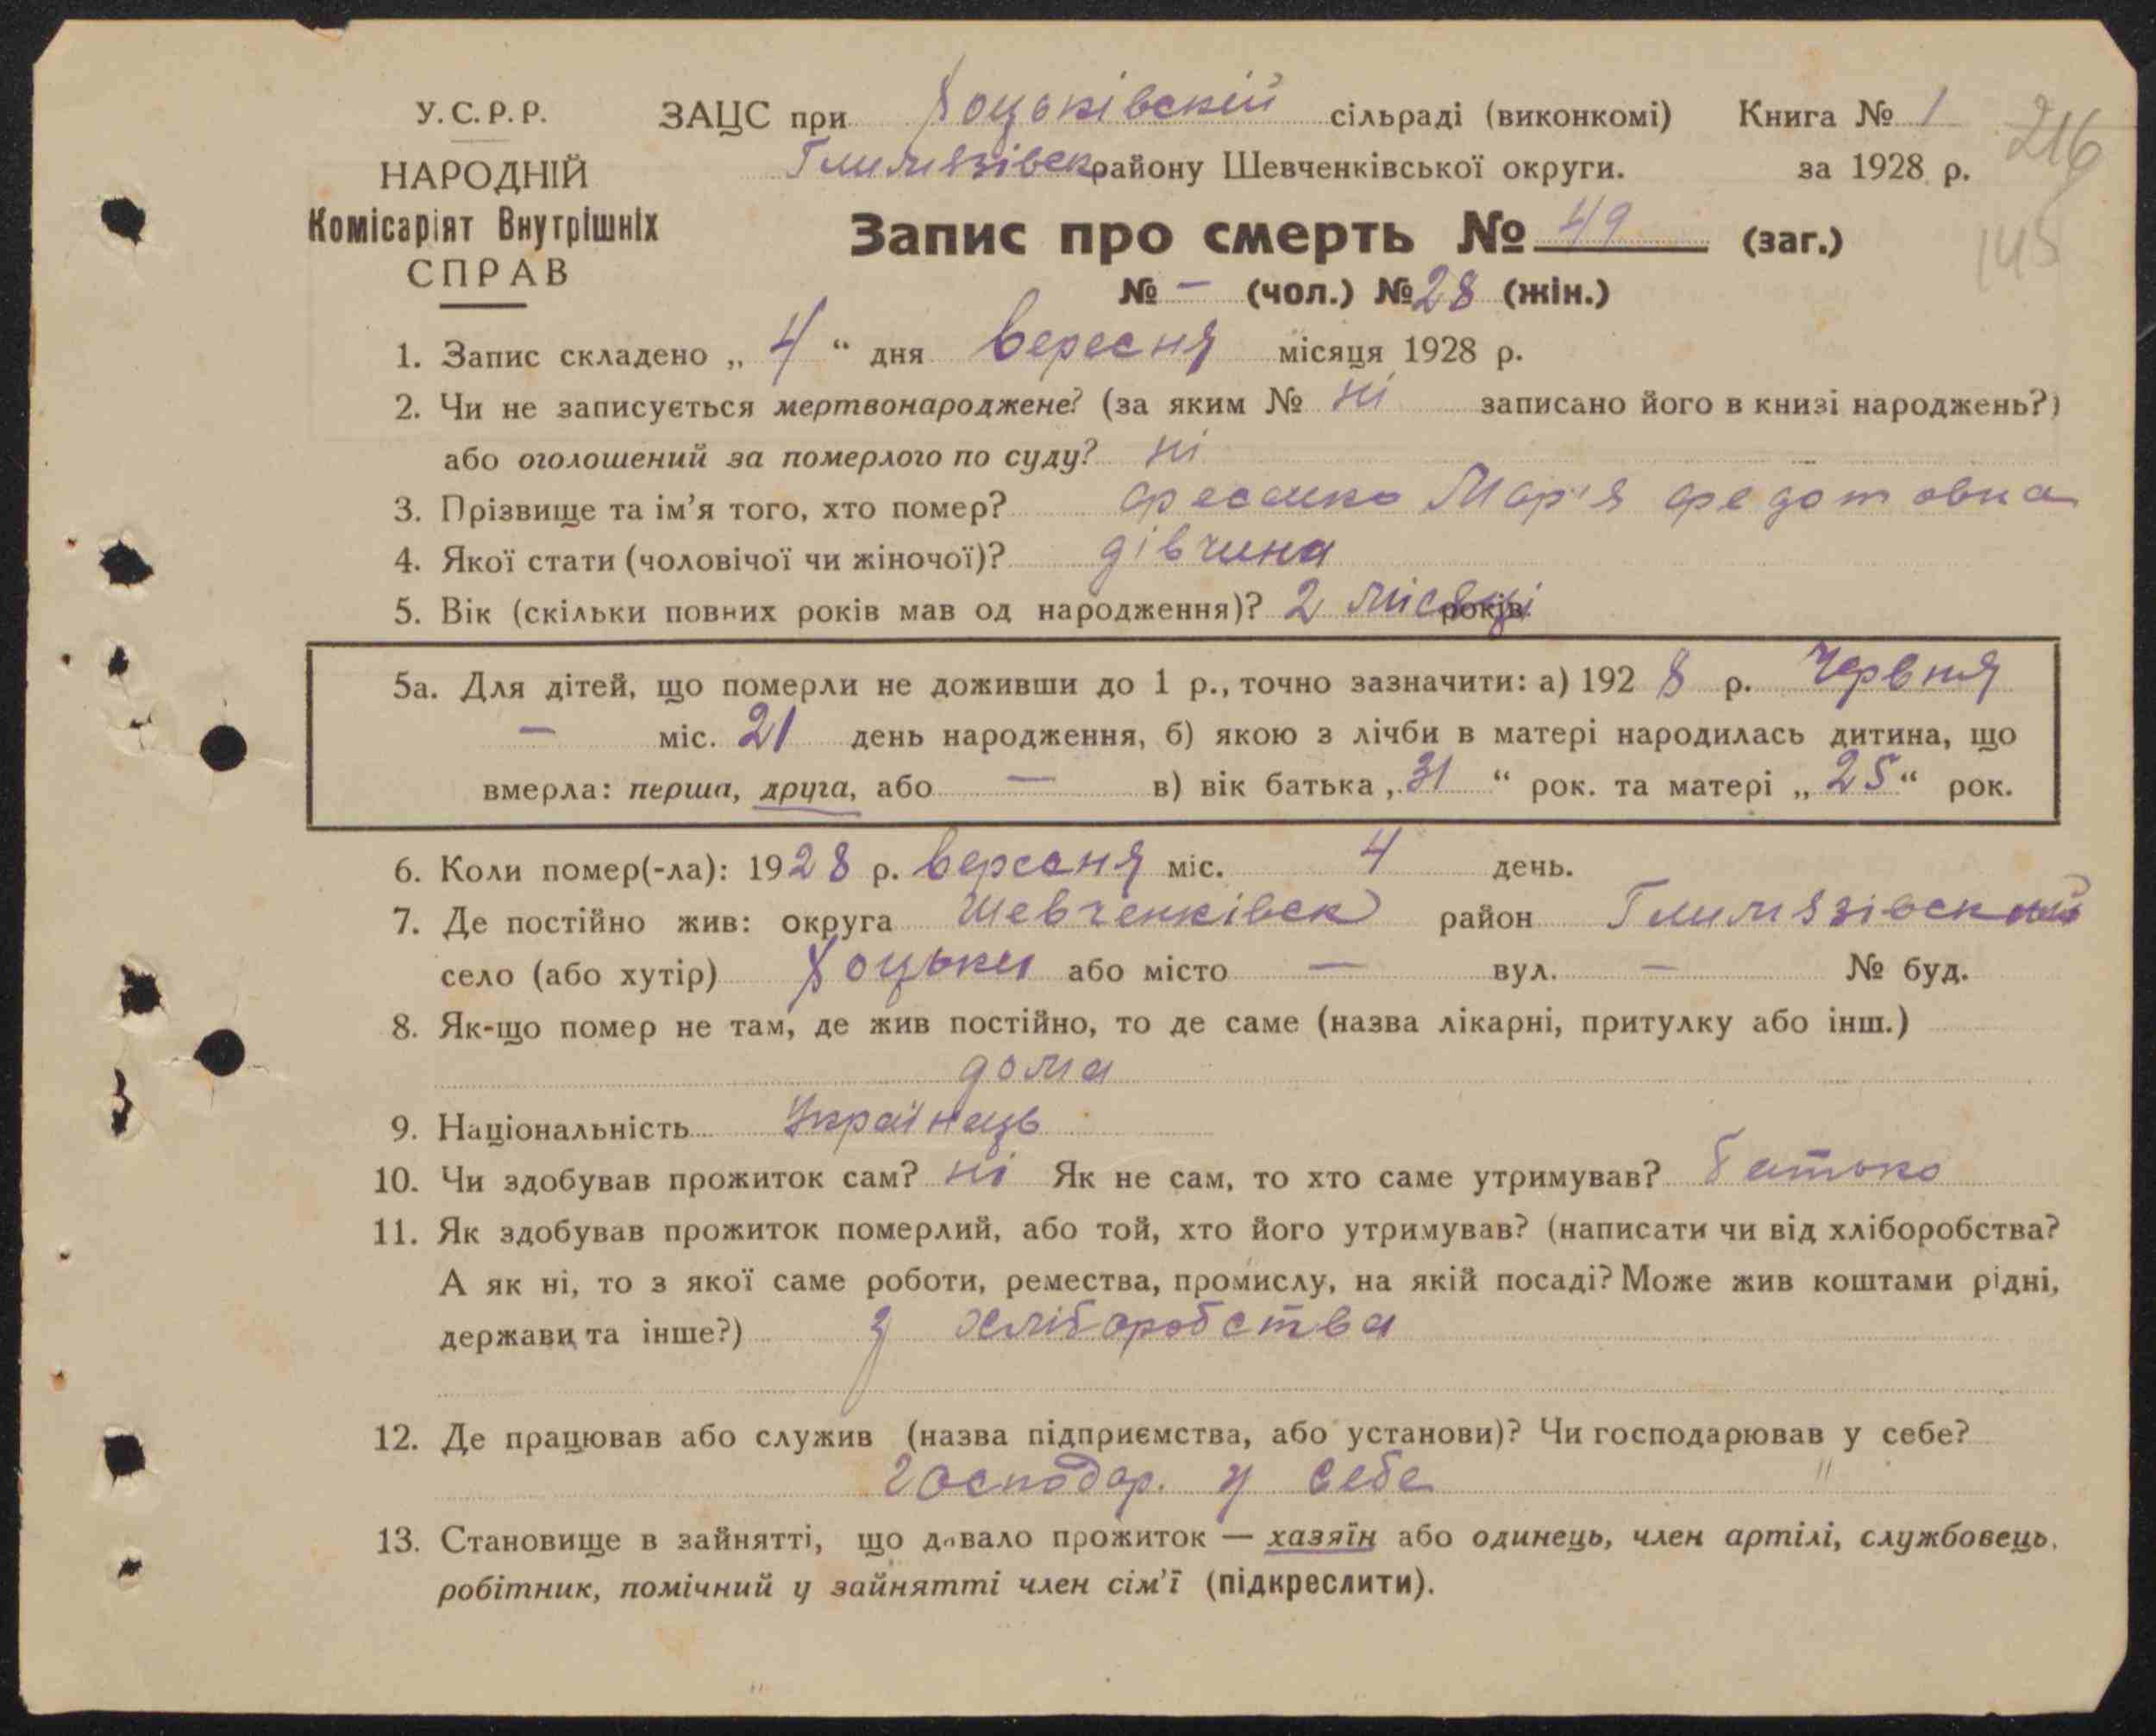 У.С.Р.Р. ЗАЦС при Хоцьківскій сільраді (виконкомі) Книга № 1
216
НАРОДНІЙ Глимязівск району Шевченківської округи. за 1928 р.
Комісаріят Внутрішніх
СПРАВ
Запис про смерть № 49 (заг.)
145
№ – (чол.) № 28 (жін.)
1. Запис складено „ 4 “ дня вересня місяця 1928 р.
2. Чи не записується мертвонароджене? (за яким № ні записано його в книзі народжень?)
або оголошений за померлого по суду? ні
3. Прізвище та ім’я того, хто помер? Фесенко Мар'я Федотовна
4. Якої стати (чоловічої чи жіночої)? дівчина
5. Вік (скільки повних років мав од народження)? 2 місяці років
5а. Для дітей, що померли не доживши до 1 р., точно зазначити: а) 192 8 р. Червня
– міс. 21 день народження, б) якою з лічби в матері народилась дитина, що
вмерла: перша, друга, або – в) вік батька „ 31 “ рок. та матері „ 25 “ рок.
6. Коли помер(-ла): 1928 р. вересня міс. 4 день.
7. Де постійно жив: округа Шевченківск район Глимязівский
село (або хутір) Хоцьки або місто – вул. – № буд.
8. Як-що помер не там, де жив постійно, то де саме (назва лікарні, притулку або інш.)
дома
9. Національність Українець
10. Чи здобував прожиток сам? ні Як не сам, то хто саме утримував? батько
11. Як здобував прожиток померлий, або той, хто його утримував? (написати чи від хліборобства?
А як ні, то з якої саме роботи, ремества, промислу, на якій посаді? Може жив коштами рідні,
держави та інше?) з хліборобства
12. Де працював або служив (назва підприємства, або установи)? Чи господарював у себе?
господар. у себе
13. Становище в зайнятті, що давало прожиток — хазяїн або одинець, член артілі, службовець,
робітник, помічний у зайнятті член сім’ї (підкреслити).